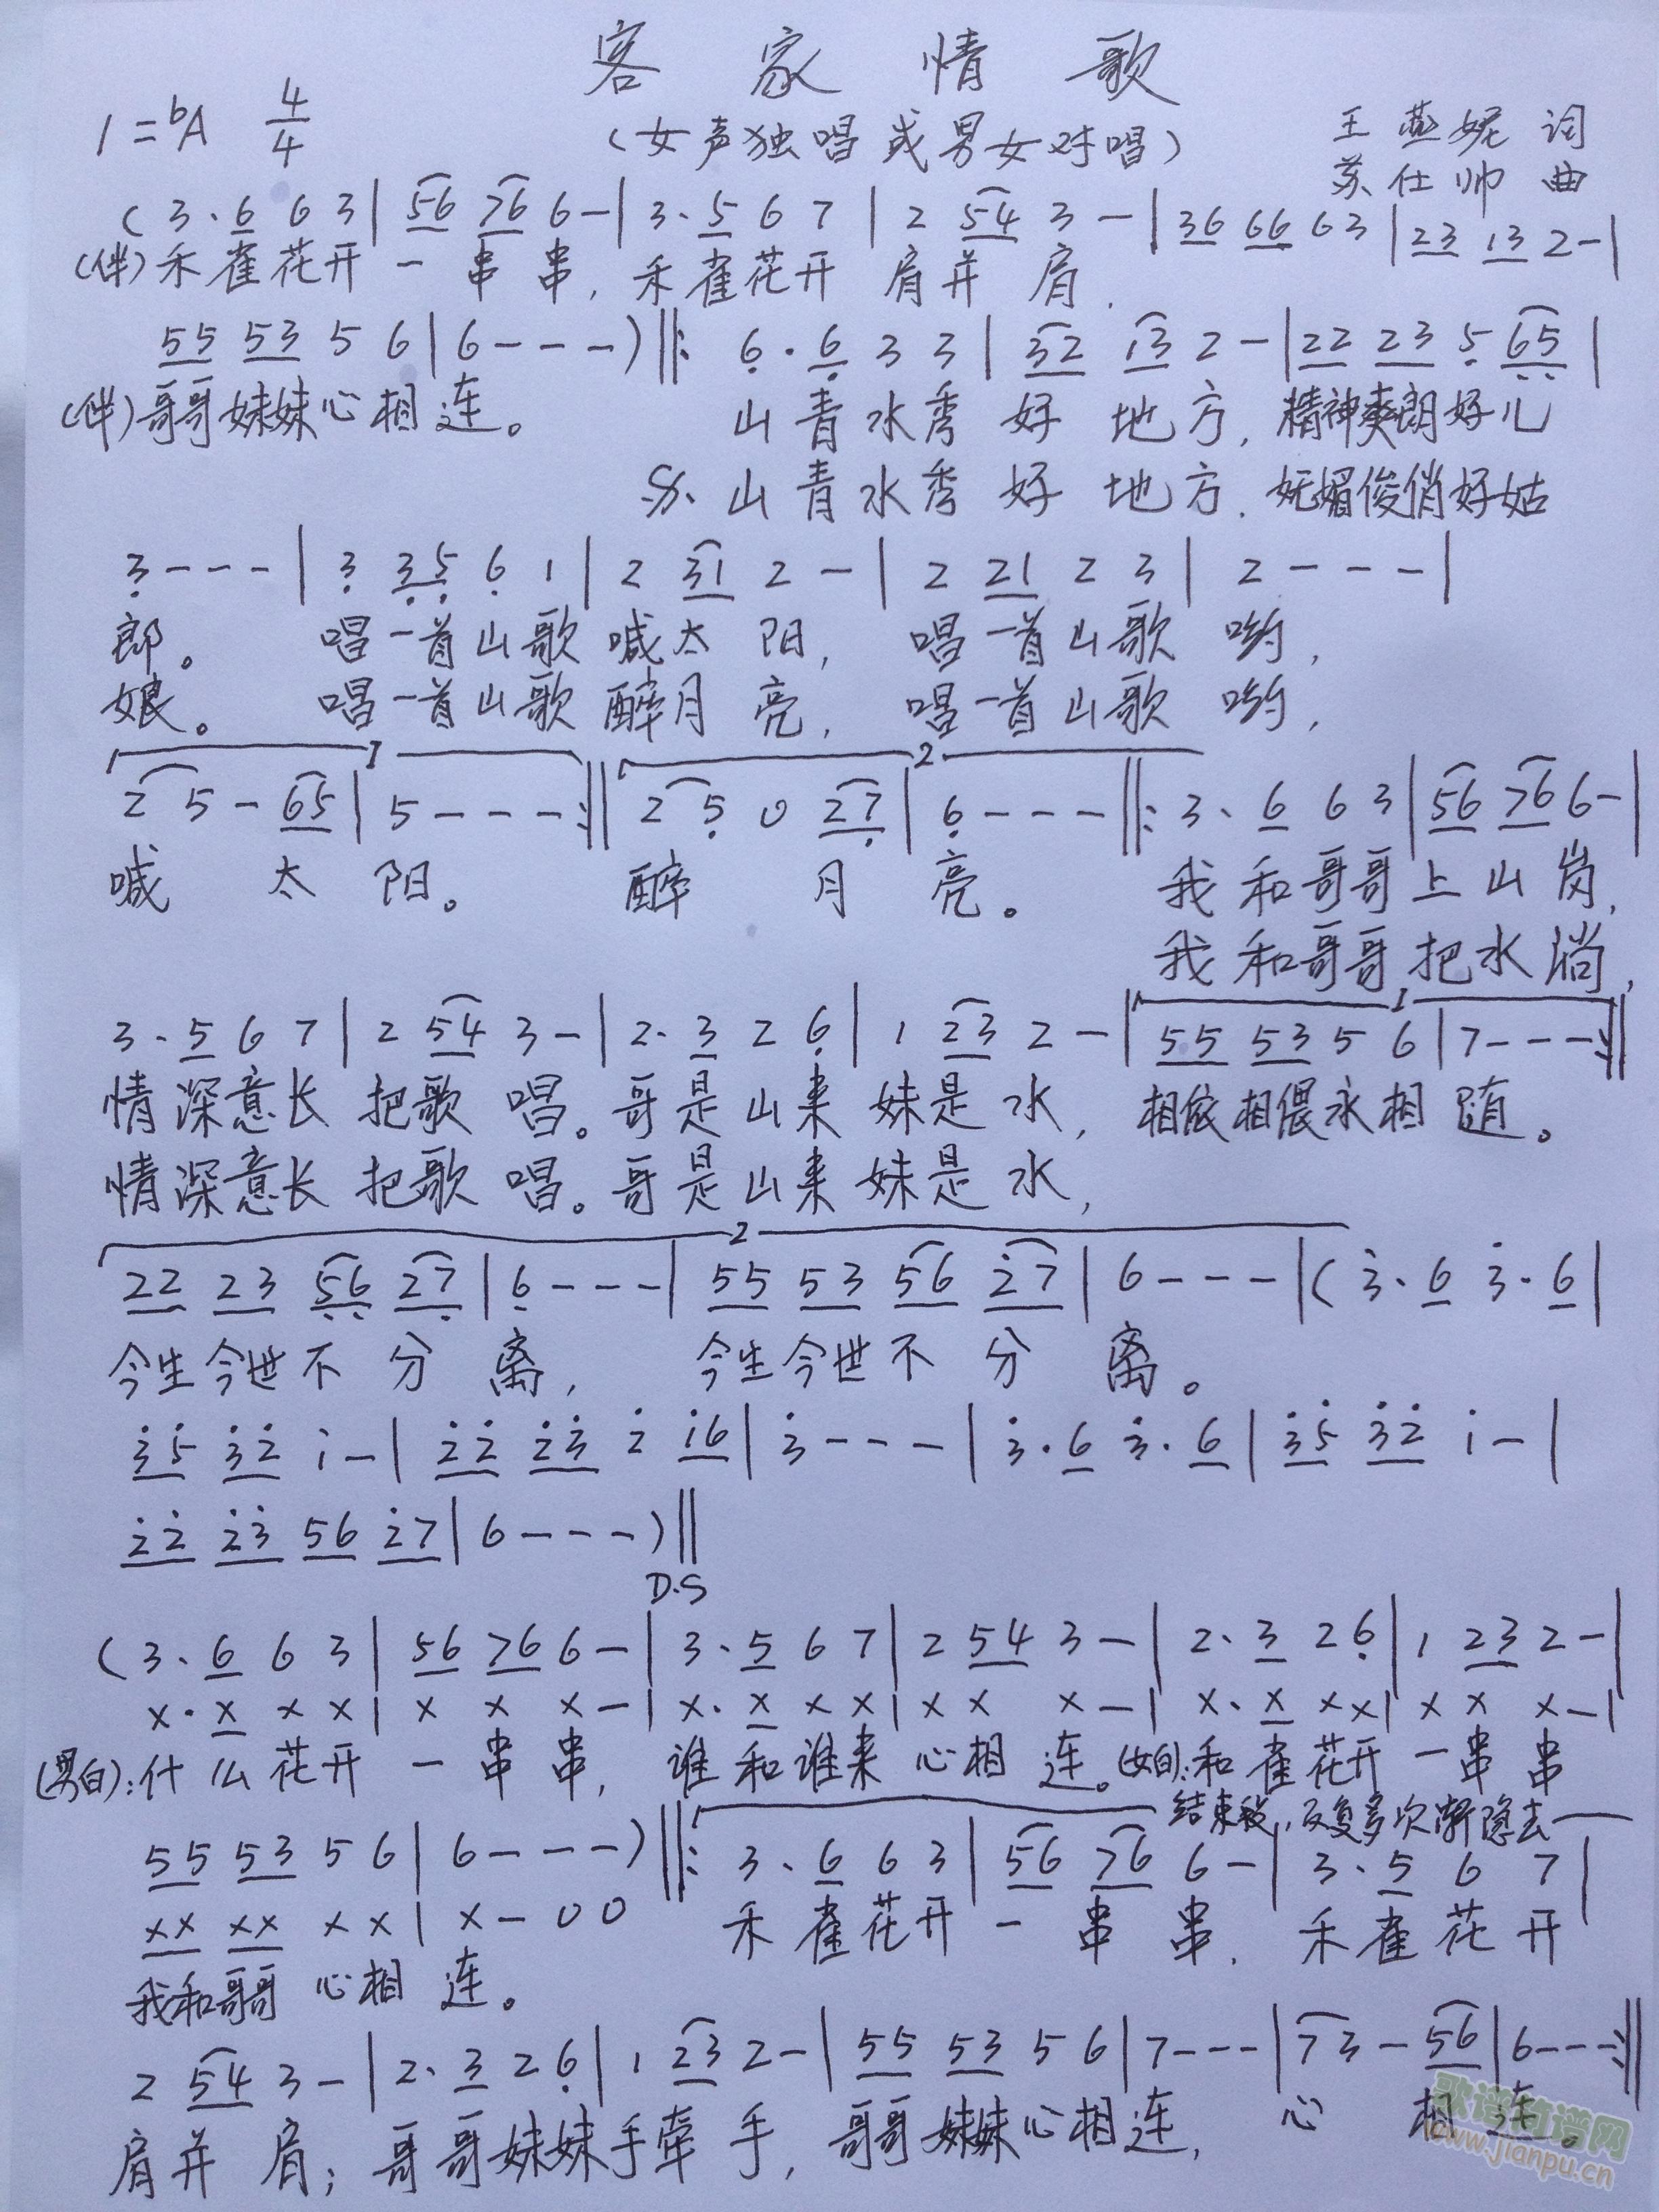 客家情歌
1=bA 4/4
(女声独唱或男女对唱)
王燕妮 词
苏仕帅 曲
(3·6 6 3|56 76 6-|3·5 6 7|2 54 3-|36 66 63|23 13 2-|
(伴)禾雀花开一串串,禾雀花开肩并肩,
55 53 5 6|6---)‖: 6·6 3 3|32 13 2-|22 23 5 65|
(伴)哥哥妹妹心相连。 山青水秀好地方,精神爽朗好儿
𝄋 山青水秀好地方,妩媚俊俏好姑
3---|3 35 6 1|2 31 2-|2 21 2 3|2---|
郎。 唱一首山歌喊太阳, 唱一首山歌哟,
娘。 唱一首山歌醉月亮, 唱一首山歌哟,
1 2
2 5-65|5---:‖2 5 0 27|6---‖: 3·6 6 3|56 76 6-|
喊太阳。 醉月亮。 我和哥哥上山岗,
我和哥哥把水淌,
1
3·5 6 7|2 54 3-|2·3 2 6|1 23 2-|55 53 5 6|7---:‖
情深意长把歌唱。哥是山来妹是水,相依相偎永相随。
情深意长把歌唱。哥是山来妹是水,
2
22 23 56 27|6---|55 53 56 2̇7|6---|(3̇·6 3̇·6|
今生今世不分离, 今生今世不分离。
3̇5̇ 3̇2̇ 1̇-|2̇2̇ 2̇3̇ 2̇ 1̇6|3̇---|3̇·6 3̇·6|3̇5̇ 3̇2̇ 1̇-|
2̇2̇ 2̇3̇ 56 2̇7|6---)‖
D.S
(3·6 6 3|56 76 6-|3·5 6 7|2 54 3-|2·3 2 6|1 23 2-|
x·x x x|x x x-|x·x x x|x x x-|x·x x x|x x x-|
(男白):什么花开一串串, 谁和谁来心相连。(女白):和雀花开一串串
结束段,反复多次渐隐去
55 53 5 6|6---)‖: 3·6 6 3|56 76 6-|3·5 6 7|
xx xx x x|x-0 0
禾雀花开一串串,禾雀花开
我和哥哥心相连。
2 54 3-|2·3 2 6|1 23 2-|55 53 5 6|7---|7 3-56|6---:‖
肩并肩;哥哥妹妹手牵手,哥哥妹妹心相连, 心相连。
歌谱简谱网
www.jianpu.cn